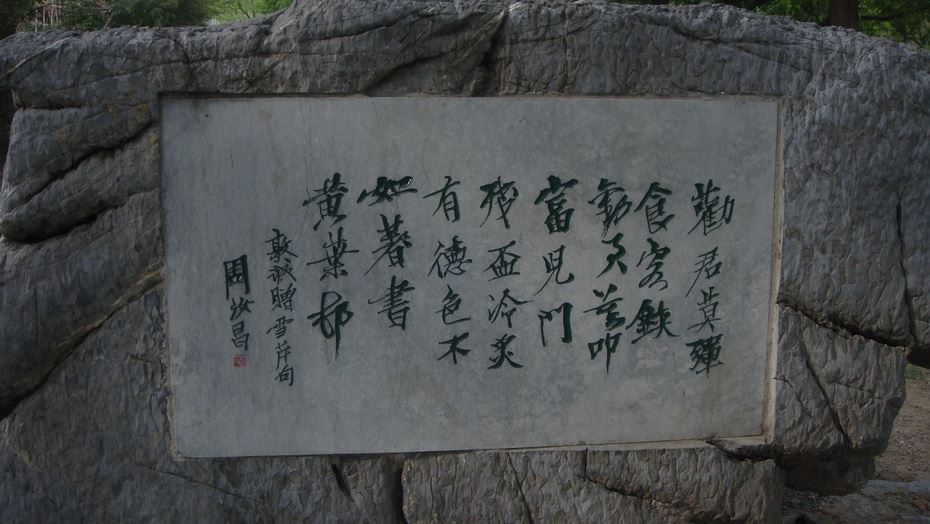 勸君莫彈
食客鋏
勸君莫叩
富兒門
殘盃冷炙
有德色不
如著書
黃葉邨
敦誠贈雪芹句
周汝昌